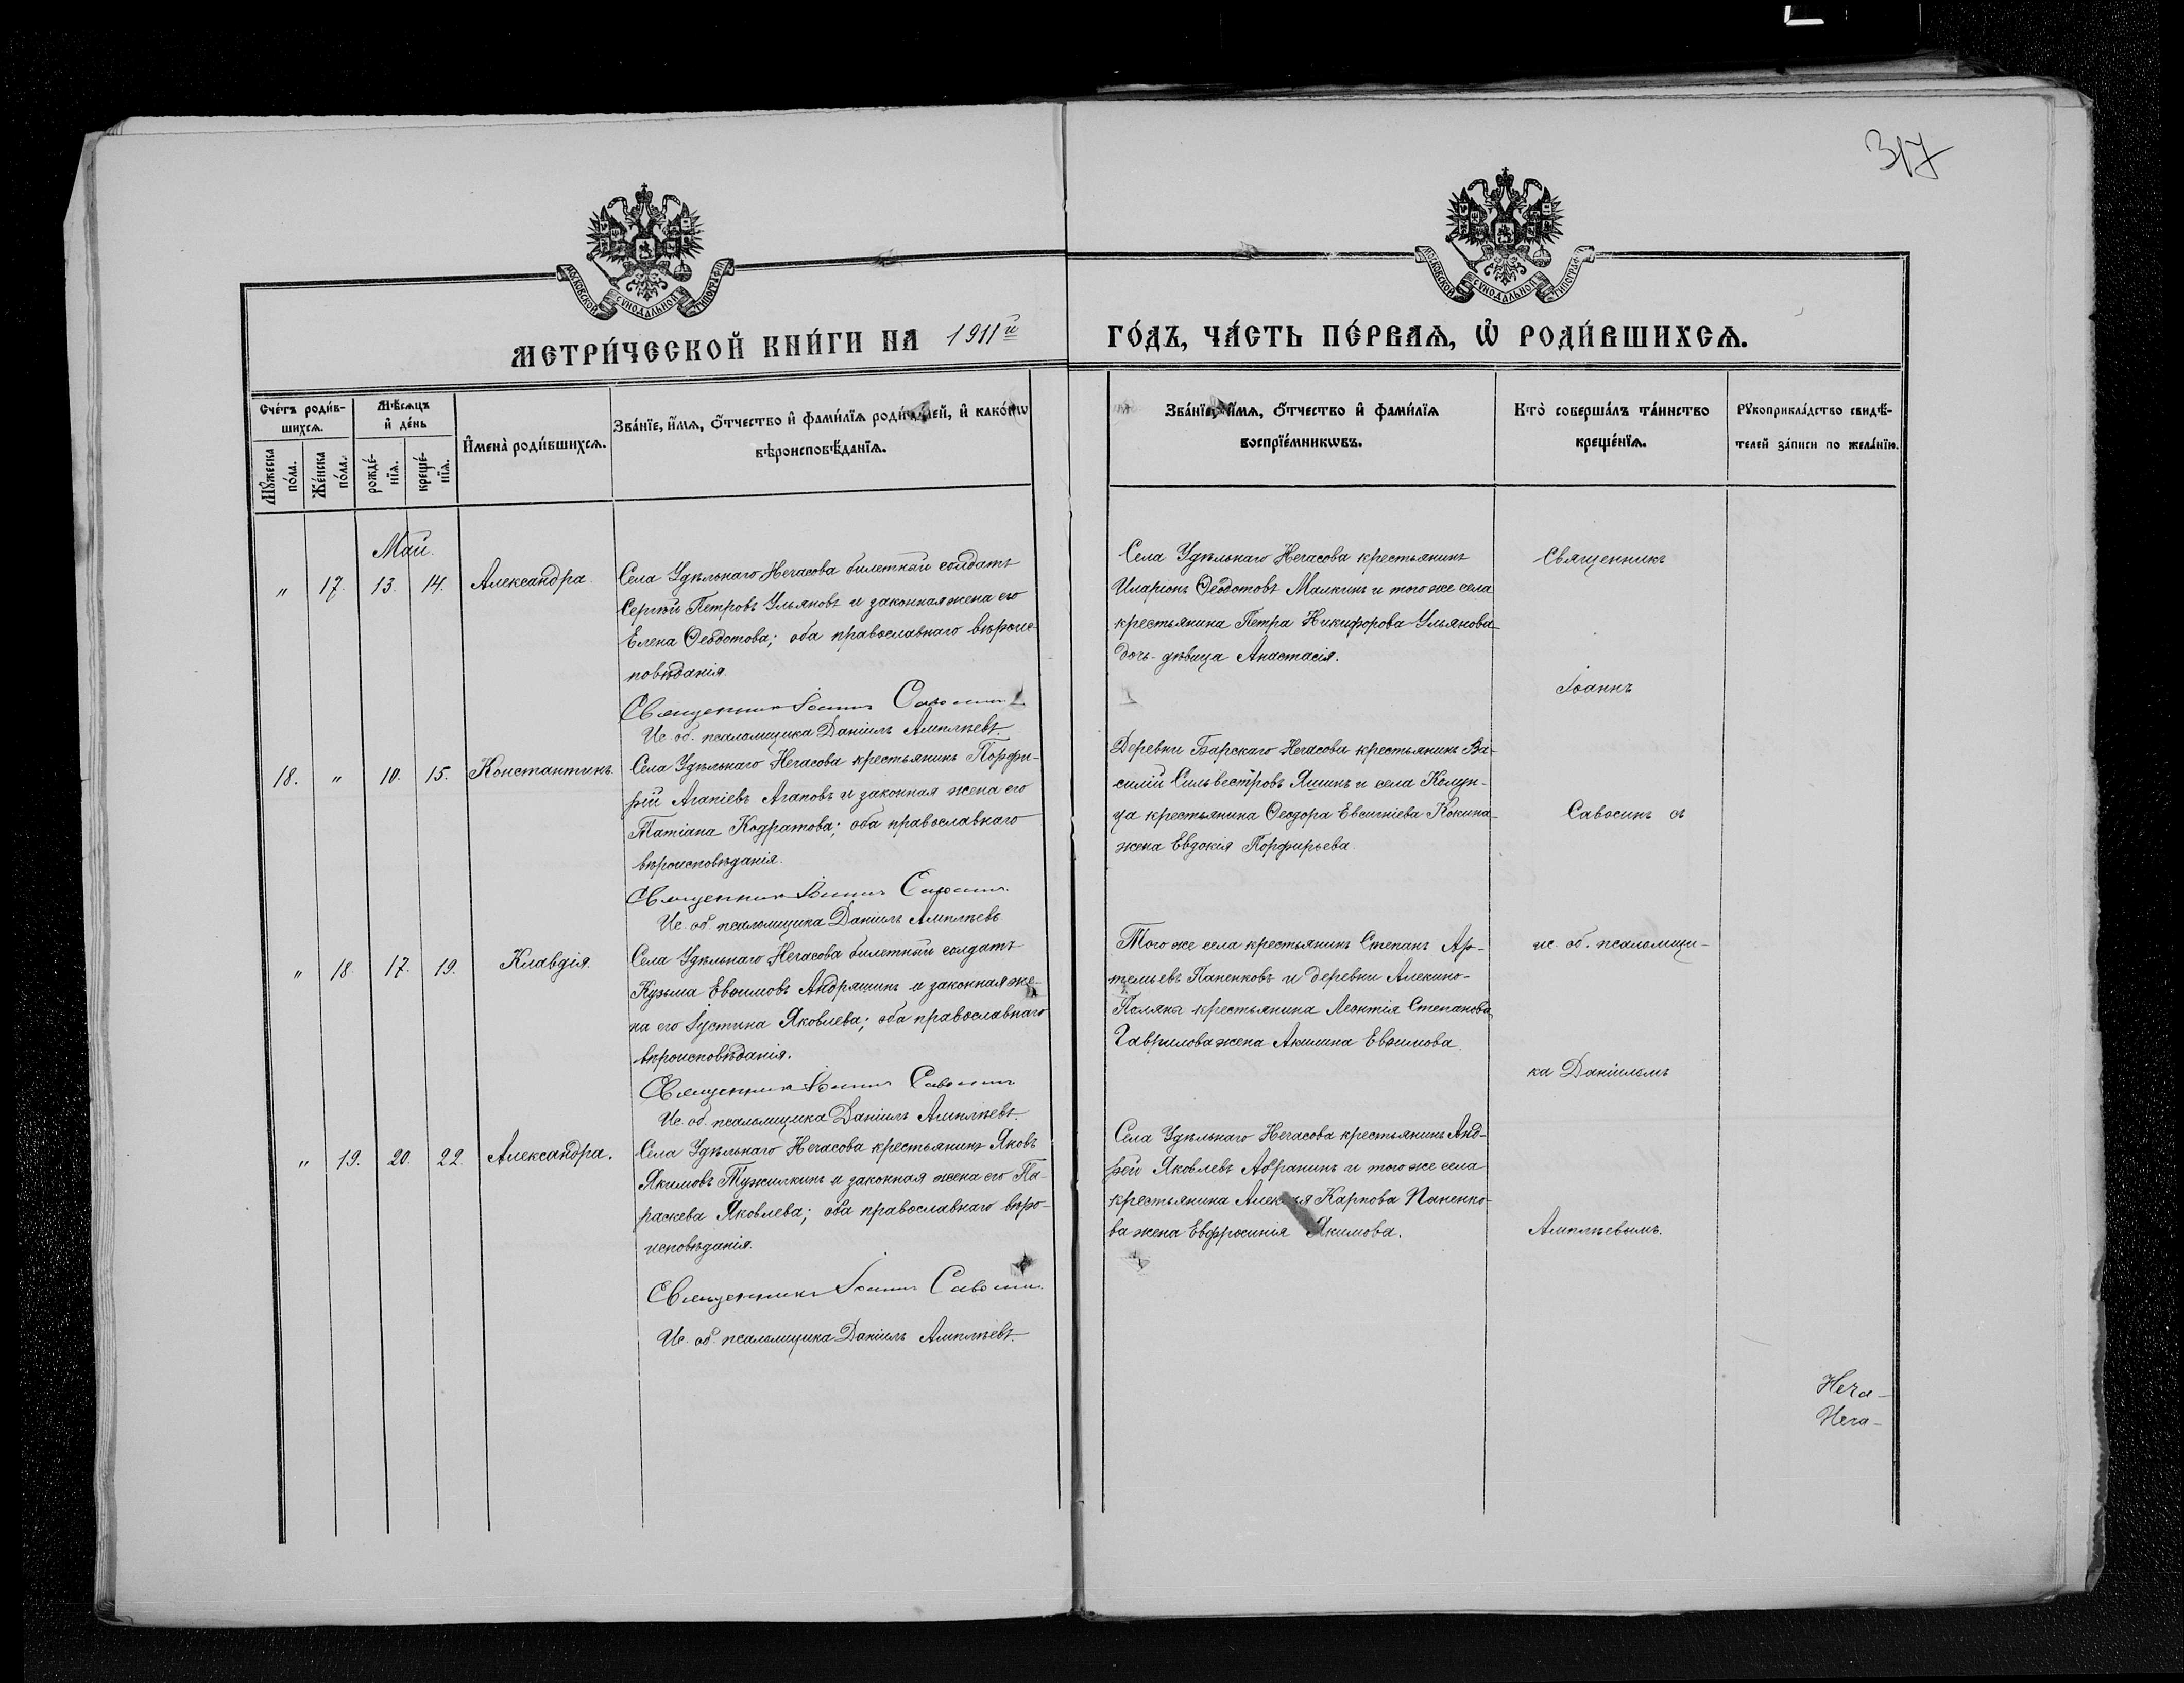 317
МОСКОВСКОЙ СѴНОДАЛЬНОЙ ТИПОГРАФІИ
МОСКОВСКОЙ СѴНОДАЛЬНОЙ ТИПОГРАФІИ
МЕТРИ́ЧЕСКОЙ КНИ́ГИ НА 1911й ГО́ДЪ, ЧА́СТЬ ПЕ́РВАѦ, Ѡ҆ РОДИ́ВШИХСѦ.
Сче́тъ роди́в-
шихсѧ.
Мꙋ́жеска
по́ла.
Же́нска
по́ла.
Мѣ́сѧцъ
и҆ де́нь
рожде́-
нїѧ.
креще́-
нїѧ.
И҆мена̀ роди́вшихсѧ.
Зва́нїе, и҆́мѧ, ѻ҆́тчество и҆ фами́лїѧ роди́телей, и҆ како́гѡ
вѣроисповѣ́данїѧ.
Зва́нїе, и҆́мѧ, ѻ҆́тчество и҆ фами́лїѧ
воспрїе́мникѡвъ.
Кто̀ соверша́лъ та́инство
креще́нїѧ.
Рꙋкоприкла́дство свидѣ́-
телей за́писи по жела́нїю.
Май.
" 17. 13. 14. Александра.
Села Удѣльнаго Нечасова билетный солдатъ
Сергѣй Петровъ Ульяновъ и законная жена его
Елена Ѳеодотова; оба православнаго вѣроис-
повѣданія.
Священникъ Іоаннъ Савосинъ
Ис. об. псаломщика Даніилъ Амплѣевъ.
Села Удѣльнаго Нечасова крестьянинъ
Иларіонъ Ѳеодотовъ Малкинъ и того же села
крестьянина Петра Никифорова Ульянова
дочь-дѣвица Анастасія.
18. " 10. 15. Константинъ.
Села Удѣльнаго Нечасова крестьянинъ Порфи-
рій Агапіевъ Агаповъ и законная жена его
Татіана Кодратова; оба православнаго
вѣроисповѣданія.
Священникъ Іоаннъ Савосинъ.
Ис. об. псаломщика Даніилъ Амплѣевъ
Деревни Барскаго Нечасова крестьянинъ Ва-
силій Сильвестровъ Яшинъ и села Колун-
ца крестьянина Ѳеодора Евсигніева Кокина
жена Евдокія Порфирьева
" 18. 17. 19. Клавдія.
Села Удѣльнаго Нечасова билетный солдатъ
Кузьма Евѳимовъ Андряшинъ и законная же-
на его Іустина Яковлева; оба православнаго
вѣроисповѣданія.
Священникъ Іоаннъ Савосинъ
Ис. об. псаломщика Даніилъ Амплѣевъ
Того же села крестьянинъ Степанъ Ар-
темьевъ Паненковъ и деревни Алекино-
Поляна крестьянина Леонтія Степанова
Гаврилова жена Акилина Евѳимова.
" 19. 20. 22. Александра.
Села Удѣльнаго Нечасова крестьянинъ Яковъ
Якимовъ Тужилкинъ и законная жена его Па-
раскева Яковлева; оба православнаго вѣро-
исповѣданія.
Священникъ Іоаннъ Савосинъ.
Ис. об. псаломщика Даніилъ Амплѣевъ.
Села Удѣльнаго Нечасова крестьянинъ Анд-
рей Яковлевъ Авранинъ и того же села
крестьянина Алексѣя Карпова Паненко-
ва жена Евфросинія Якимова.
Священникъ
Іоаннъ
Савосинъ съ
ис. об. псаломщи-
ка Даніиломъ
Амплѣевымъ.
Неча-
Неча-